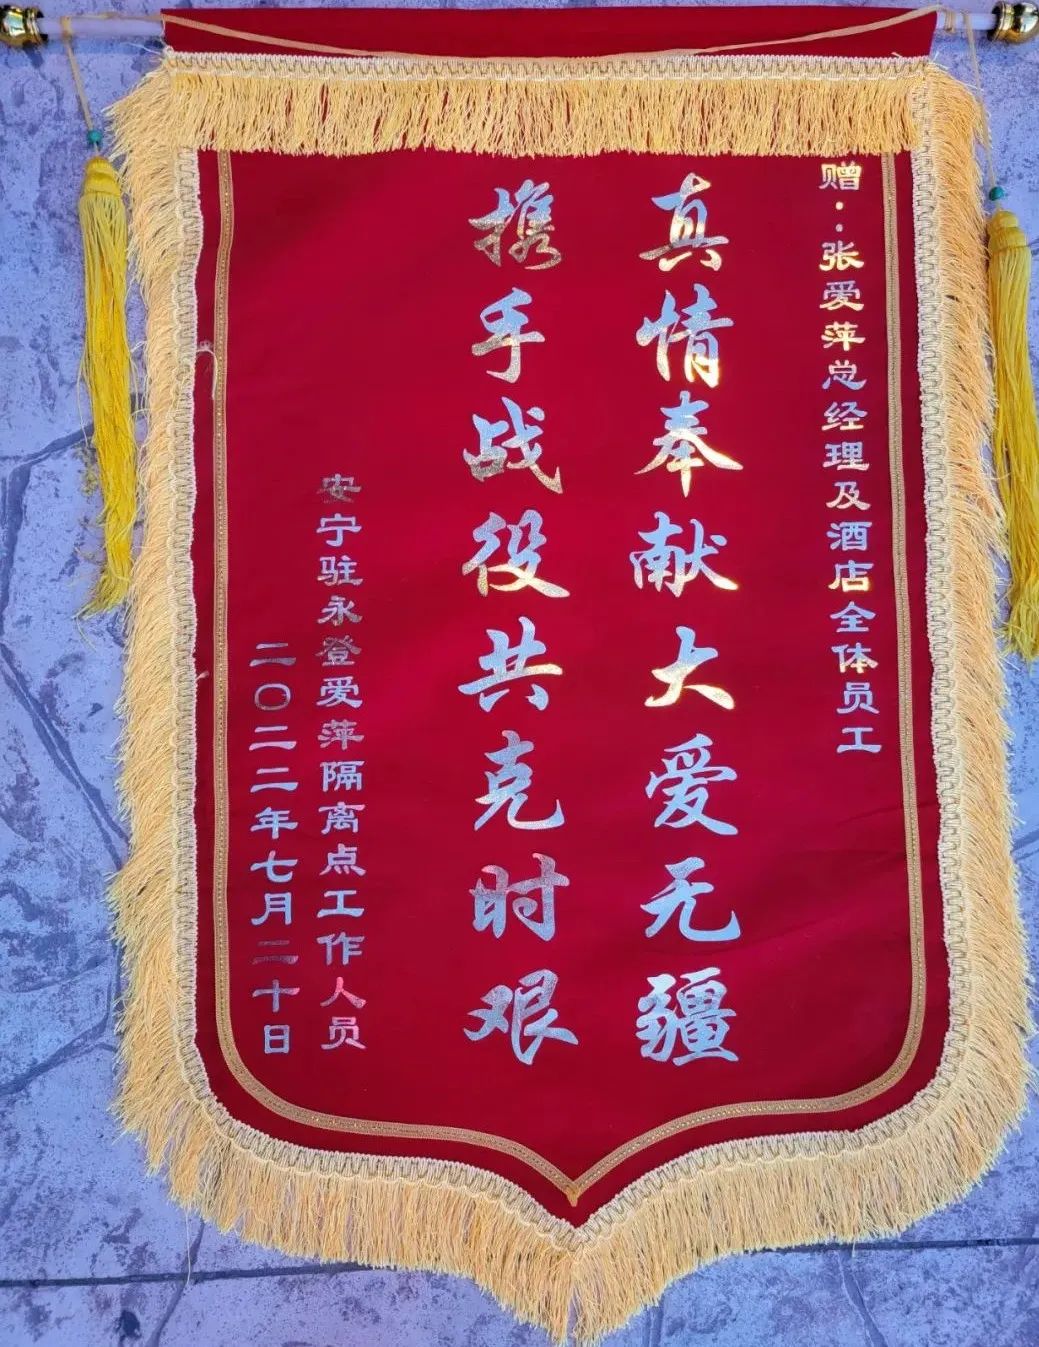 赠：张爱萍总经理及酒店全体员工
真情奉献大爱无疆
携手战役共克时艰
安宁驻永登爱萍隔离点工作人员
二〇二二年七月二十日